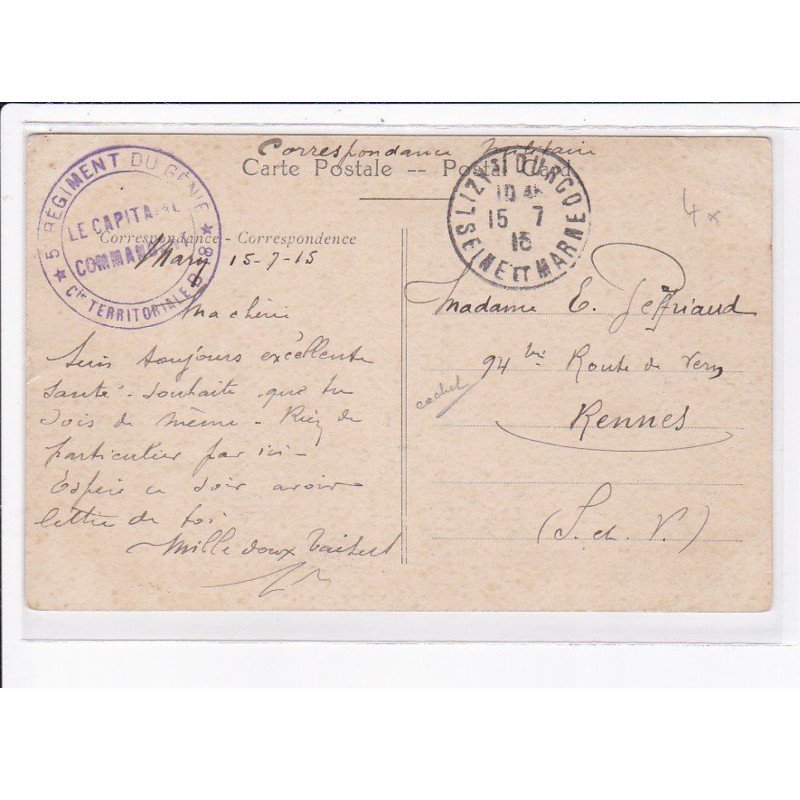 Correspondance Militaire
Carte Postale -- Postal Card
5 RÉGIMENT DU GÉNIE
LE CAPITAINE
COMMANDANT
Cie TERRITORIALE
LIZY S/ D'OURCQ
15 7
15
SEINE ET MARNE
4
Correspondance - Correspondence
Mary 15-7-15
Ma chérie
Suis toujours excellente
santé. Souhaite que tu
sois de même - Rien de
particulier par ici -
Espère ce soir avoir
lettre de toi
Mille doux baisers
Madame E. Geffriaud
94 bis Route de Vern
cachet
Rennes
(I. et V.)